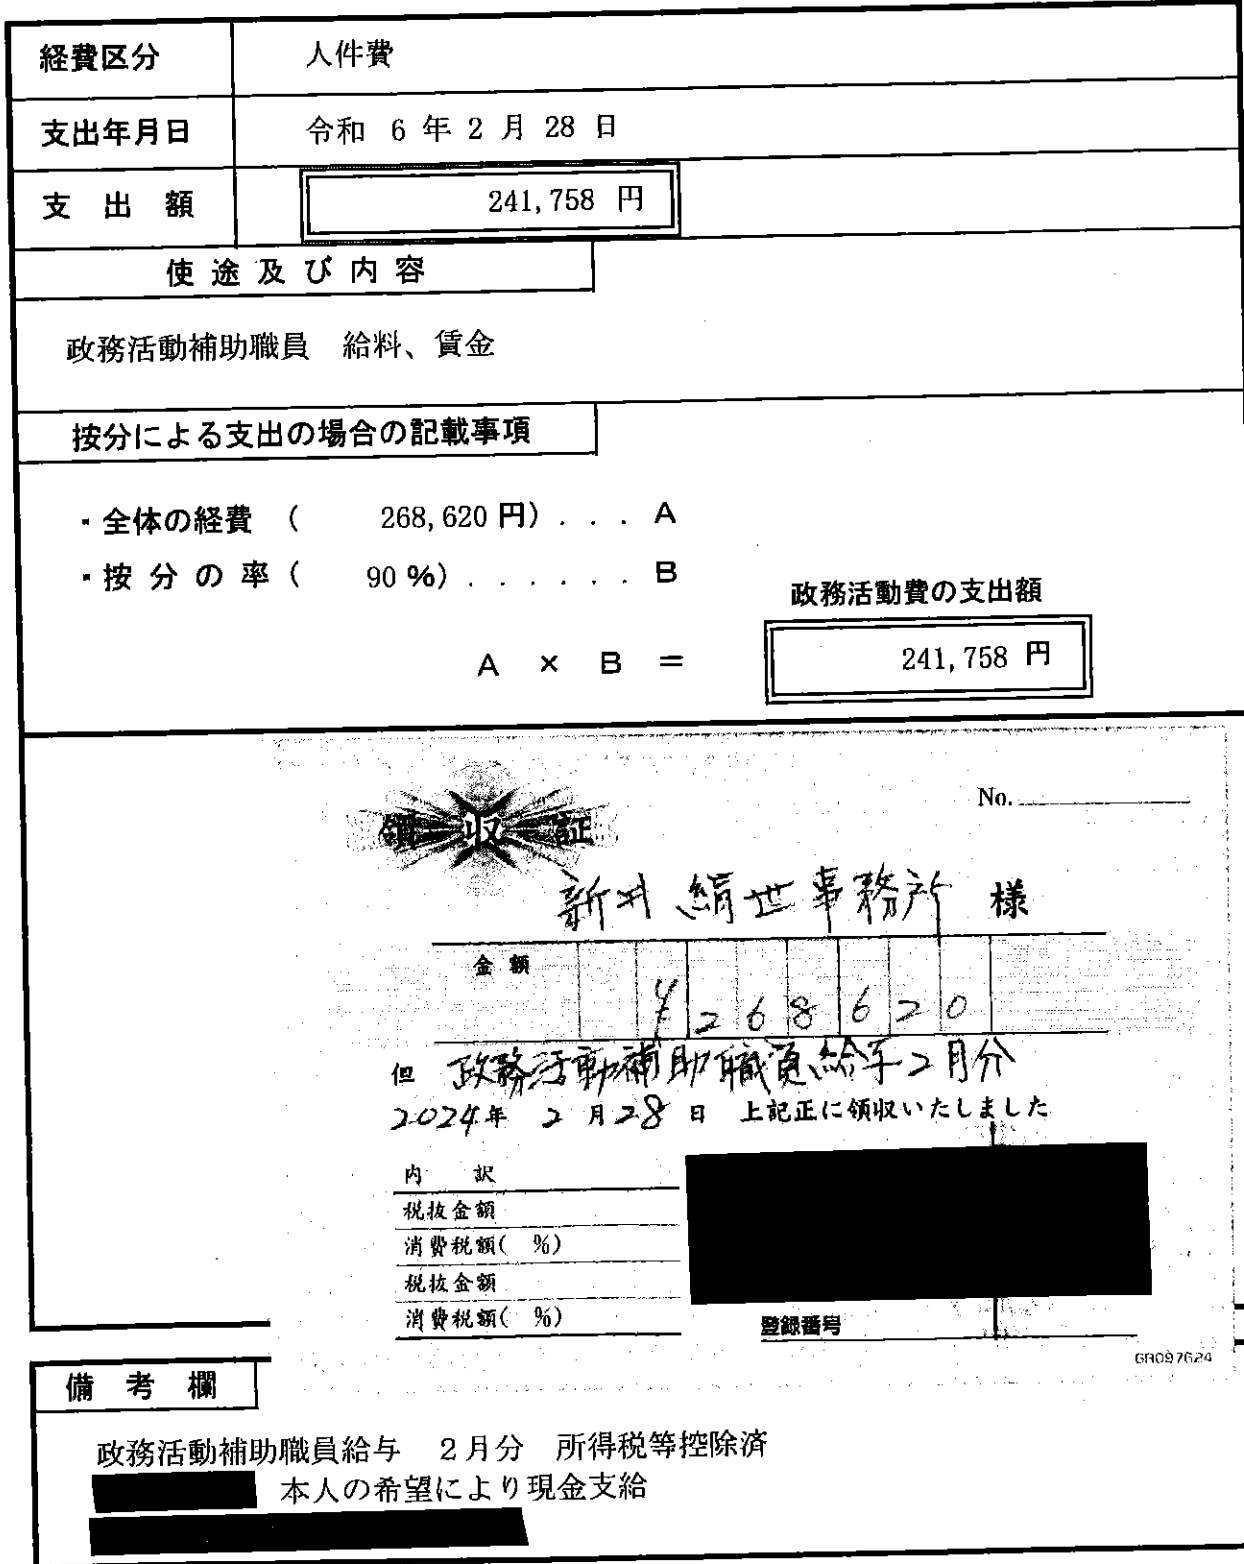 経費区分 人件費
支出年月日 令和 6 年 2 月 28 日
支 出 額 241,758 円
使 途 及 び 内 容
政務活動補助職員 給料、賃金
按分による支出の場合の記載事項
・全体の経費 ( 268,620 円) . . . A
・按 分 の 率 ( 90 %) . . . . . . . B
政務活動費の支出額
A × B = 241,758 円
No.
領収証
新井絹世事務所 様
金額 ¥268620
但 政務活動補助職員給与2月分
2024年 2月28日 上記正に領収いたしました
内 訳
税抜金額
消費税額( %)
税抜金額
消費税額( %)
登録番号
GR097624
備 考 欄
政務活動補助職員給与 2月分 所得税等控除済
本人の希望により現金支給